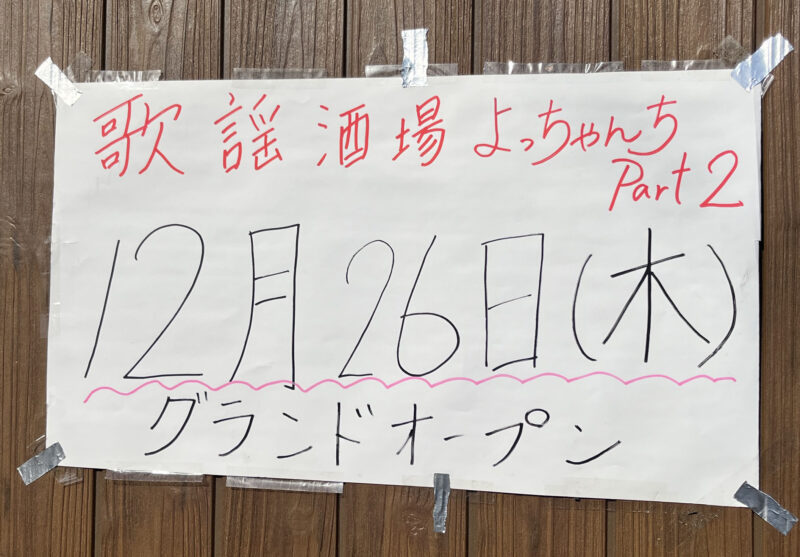 歌謡酒場よっちゃんち
Part 2
12月26日(木)
グランドオープン